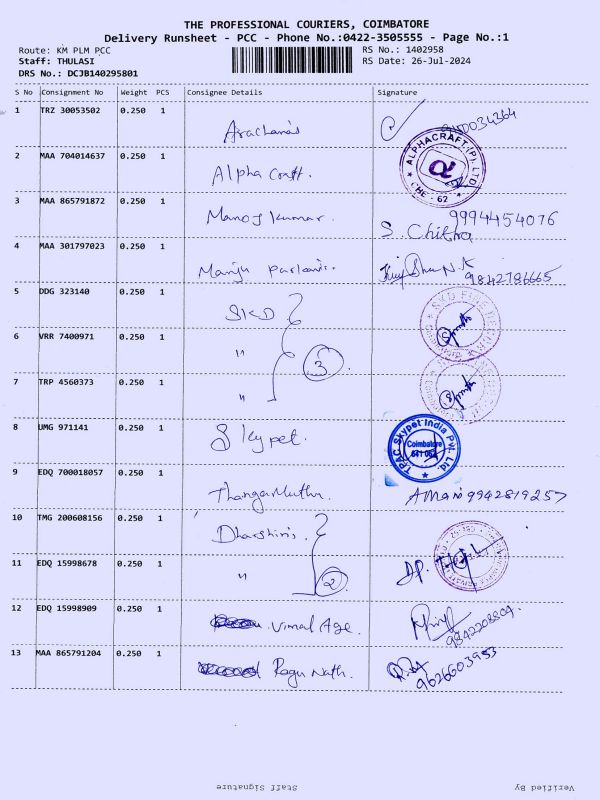 THE PROFESSIONAL COURIERS, COIMBATORE
Delivery Runsheet - PCC - Phone No.:0422-3505555 - Page No.:1
Route: KM PLM PCC RS No.: 1402958
Staff: THULASI RS Date: 26-Jul-2024
DRS No.: DCJB140295801
S No Consignment No Weight PCS Consignee Details Signature
1 TRZ 30053502 0.250 1
2 MAA 704014637 0.250 1 Alpha Craft. ALPHACRAFT (P). LTD CHE - 62
3 MAA 865791872 0.250 1 Manoj Kumar. S. Chitra 9994454076
4 MAA 301797023 0.250 1 Manju 9842786665
5 DDG 323140 0.250 1 SKD
6 VRR 7400971 0.250 1 " 3
7 TRP 4560373 0.250 1 "
8 UMG 971141 0.250 1 Skypet. TPAC Skypet India Pvt. Ltd. Coimbatore
9 EDQ 700018057 0.250 1 ThangaMuthu. A Mani 9942819257
10 TMG 200608156 0.250 1 Dharshini.
11 EDQ 15998678 0.250 1 " 2
12 EDQ 15998909 0.250 1 Vimal Age.
13 MAA 865791204 0.250 1 Ragu Nath. 9626603953
Staff Signature Verified By